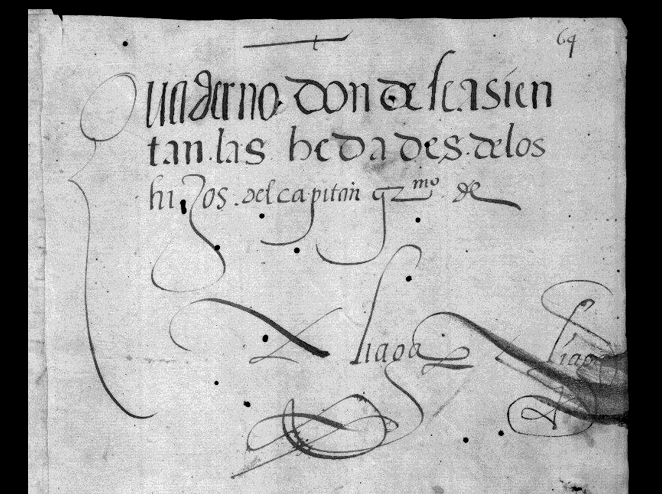 64
Quaderno donde se asien
tan las hedades de los
hijos del capitan gmo de